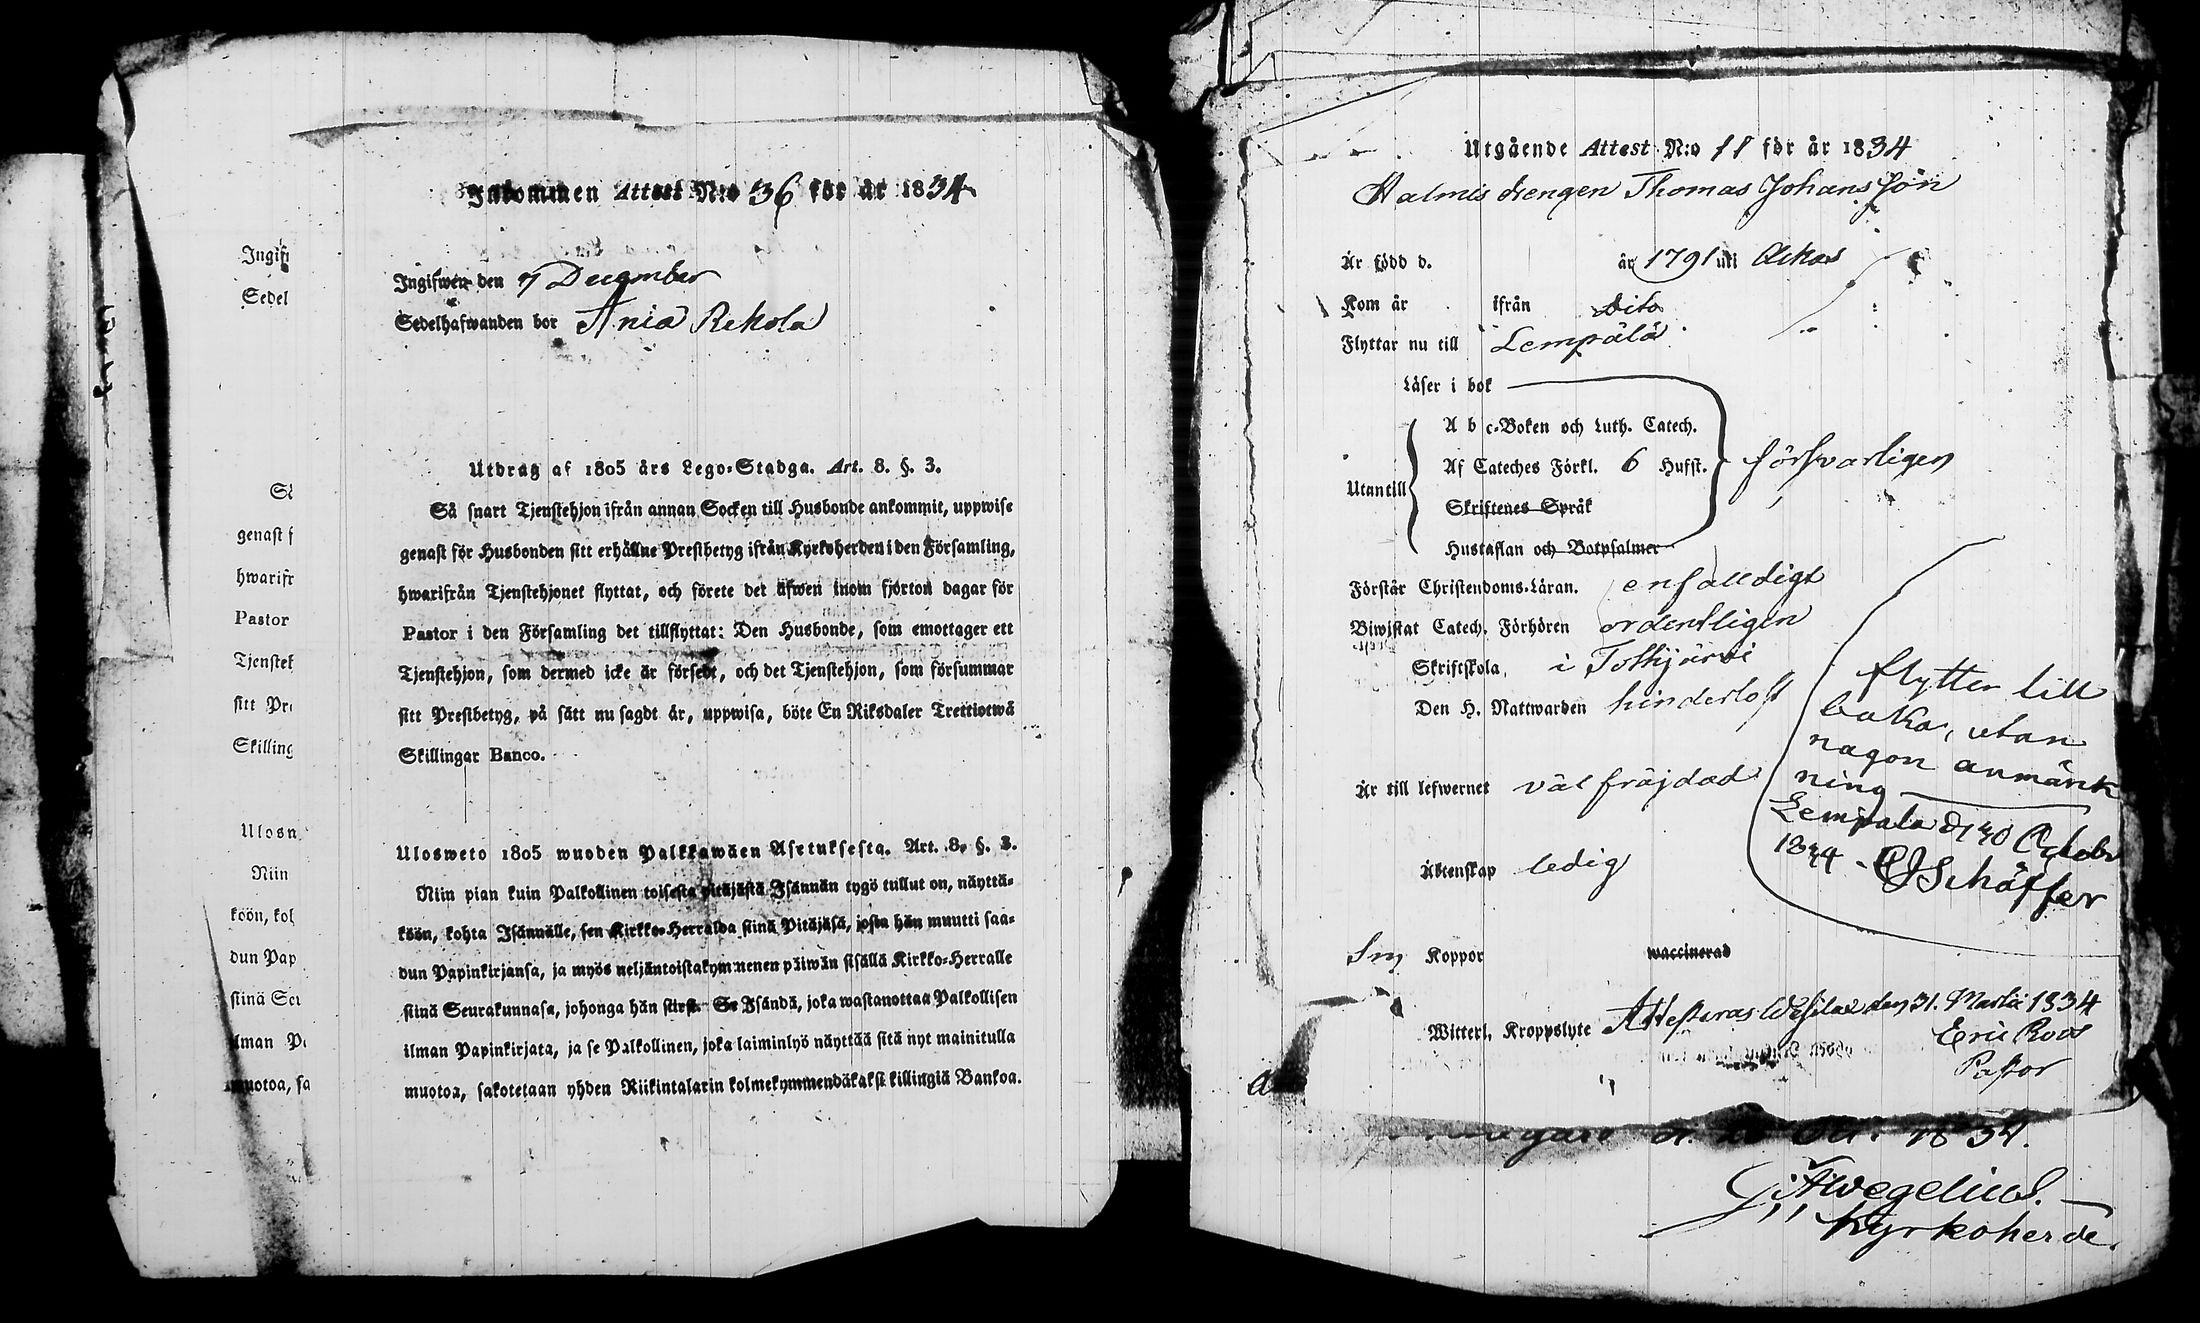 Inkommen Attest N:o 36 för år 1834
Ingifwen den 7 December
Sedelhafwanden bor Ania Rekola
Utdrag af 1805 års Lego-Stadga. Art. 8. §. 3.
Så snart Tjenstehjon ifrån annan Socken till Husbonde ankommit, uppwise
genast för Husbonden sitt erhållne Prestbetyg ifrån Kyrkoherden i den Församling,
hwarifrån Tjenstehjonet flyttat, och förete det äfwen inom fjorton dagar för
Pastor i den Församling det tillflyttat: Den Husbonde, som emottager ett
Tjenstehjon, som dermed icke är försedt, och det Tjenstehjon, som försummar
sitt Prestbetyg, på sätt nu sagdt är, uppwisa, böte En Riksdaler Trettiotwå
Skillingar Banco.
Ulosweto 1805 wuoden Palkkawäen Asetuksesta. Art. 8. §. 3.
Niin pian kuin Palkollinen toisesta pitäjästä Isännän tygö tullut on, näyttä-
köön, kohta Isännälle, sen Kirkko-Herralda siinä Pitäjäsä, josta hän muutti saa-
dun Papinkirjansa, ja myös neljäntoistakymmenen päiwän sisällä Kirkko-Herralle
siinä Seurakunnasa, johonga hän siirst. Se Isändä, joka wastanottaa Palkollisen
ilman Papinkirjata, ja se Palkollinen, joka laiminlyö näyttää sitä nyt mainitulla
muotoa, sakotetaan yhden Riikintalarin kolmekymmendäkaksi killingiä Bankoa.
Ingif
Sedel
genast f
hwarifr
Pastor
Tjensteh
sitt Pre
Skilling
Ulosn
Niin
köön, koh
dun Pap
siinä Seu
ilman Pa
muotoa, sa
Utgående Attest N:o 11 för år 1834
Halmis drengen Thomas Johansson
Är född d. år 1791 uti Akas
Kom år ifrån Dito
Flyttar nu till Lempälä
Läser i bok
A b c-Boken och Luth. Catech.
Utantill Af Cateches Förkl. 6 Hufst. försvarligen
Skriftenes Språk
Hustaflan och Botpsalmer
Förstår Christendoms-Läran. enfalldigt
Biwistat Catech. Förhören ordentligen
Skriftskola i Tottijärvi
Den H. Nattwarden hinderlöst
Är till lefwernet väl fräjdad
Äktenskap ledig
flytter till
baka, utan
nagon anmärk
ning
Lempala d 30 October
1834 - CJ Schäffer
Koppor waccinerad
Witterl. Kroppslyte Attesteras Wesilax den 31. Martii 1834
Eric Roos
Pastor
1834.
Wegelius.
Kyrkoherde.